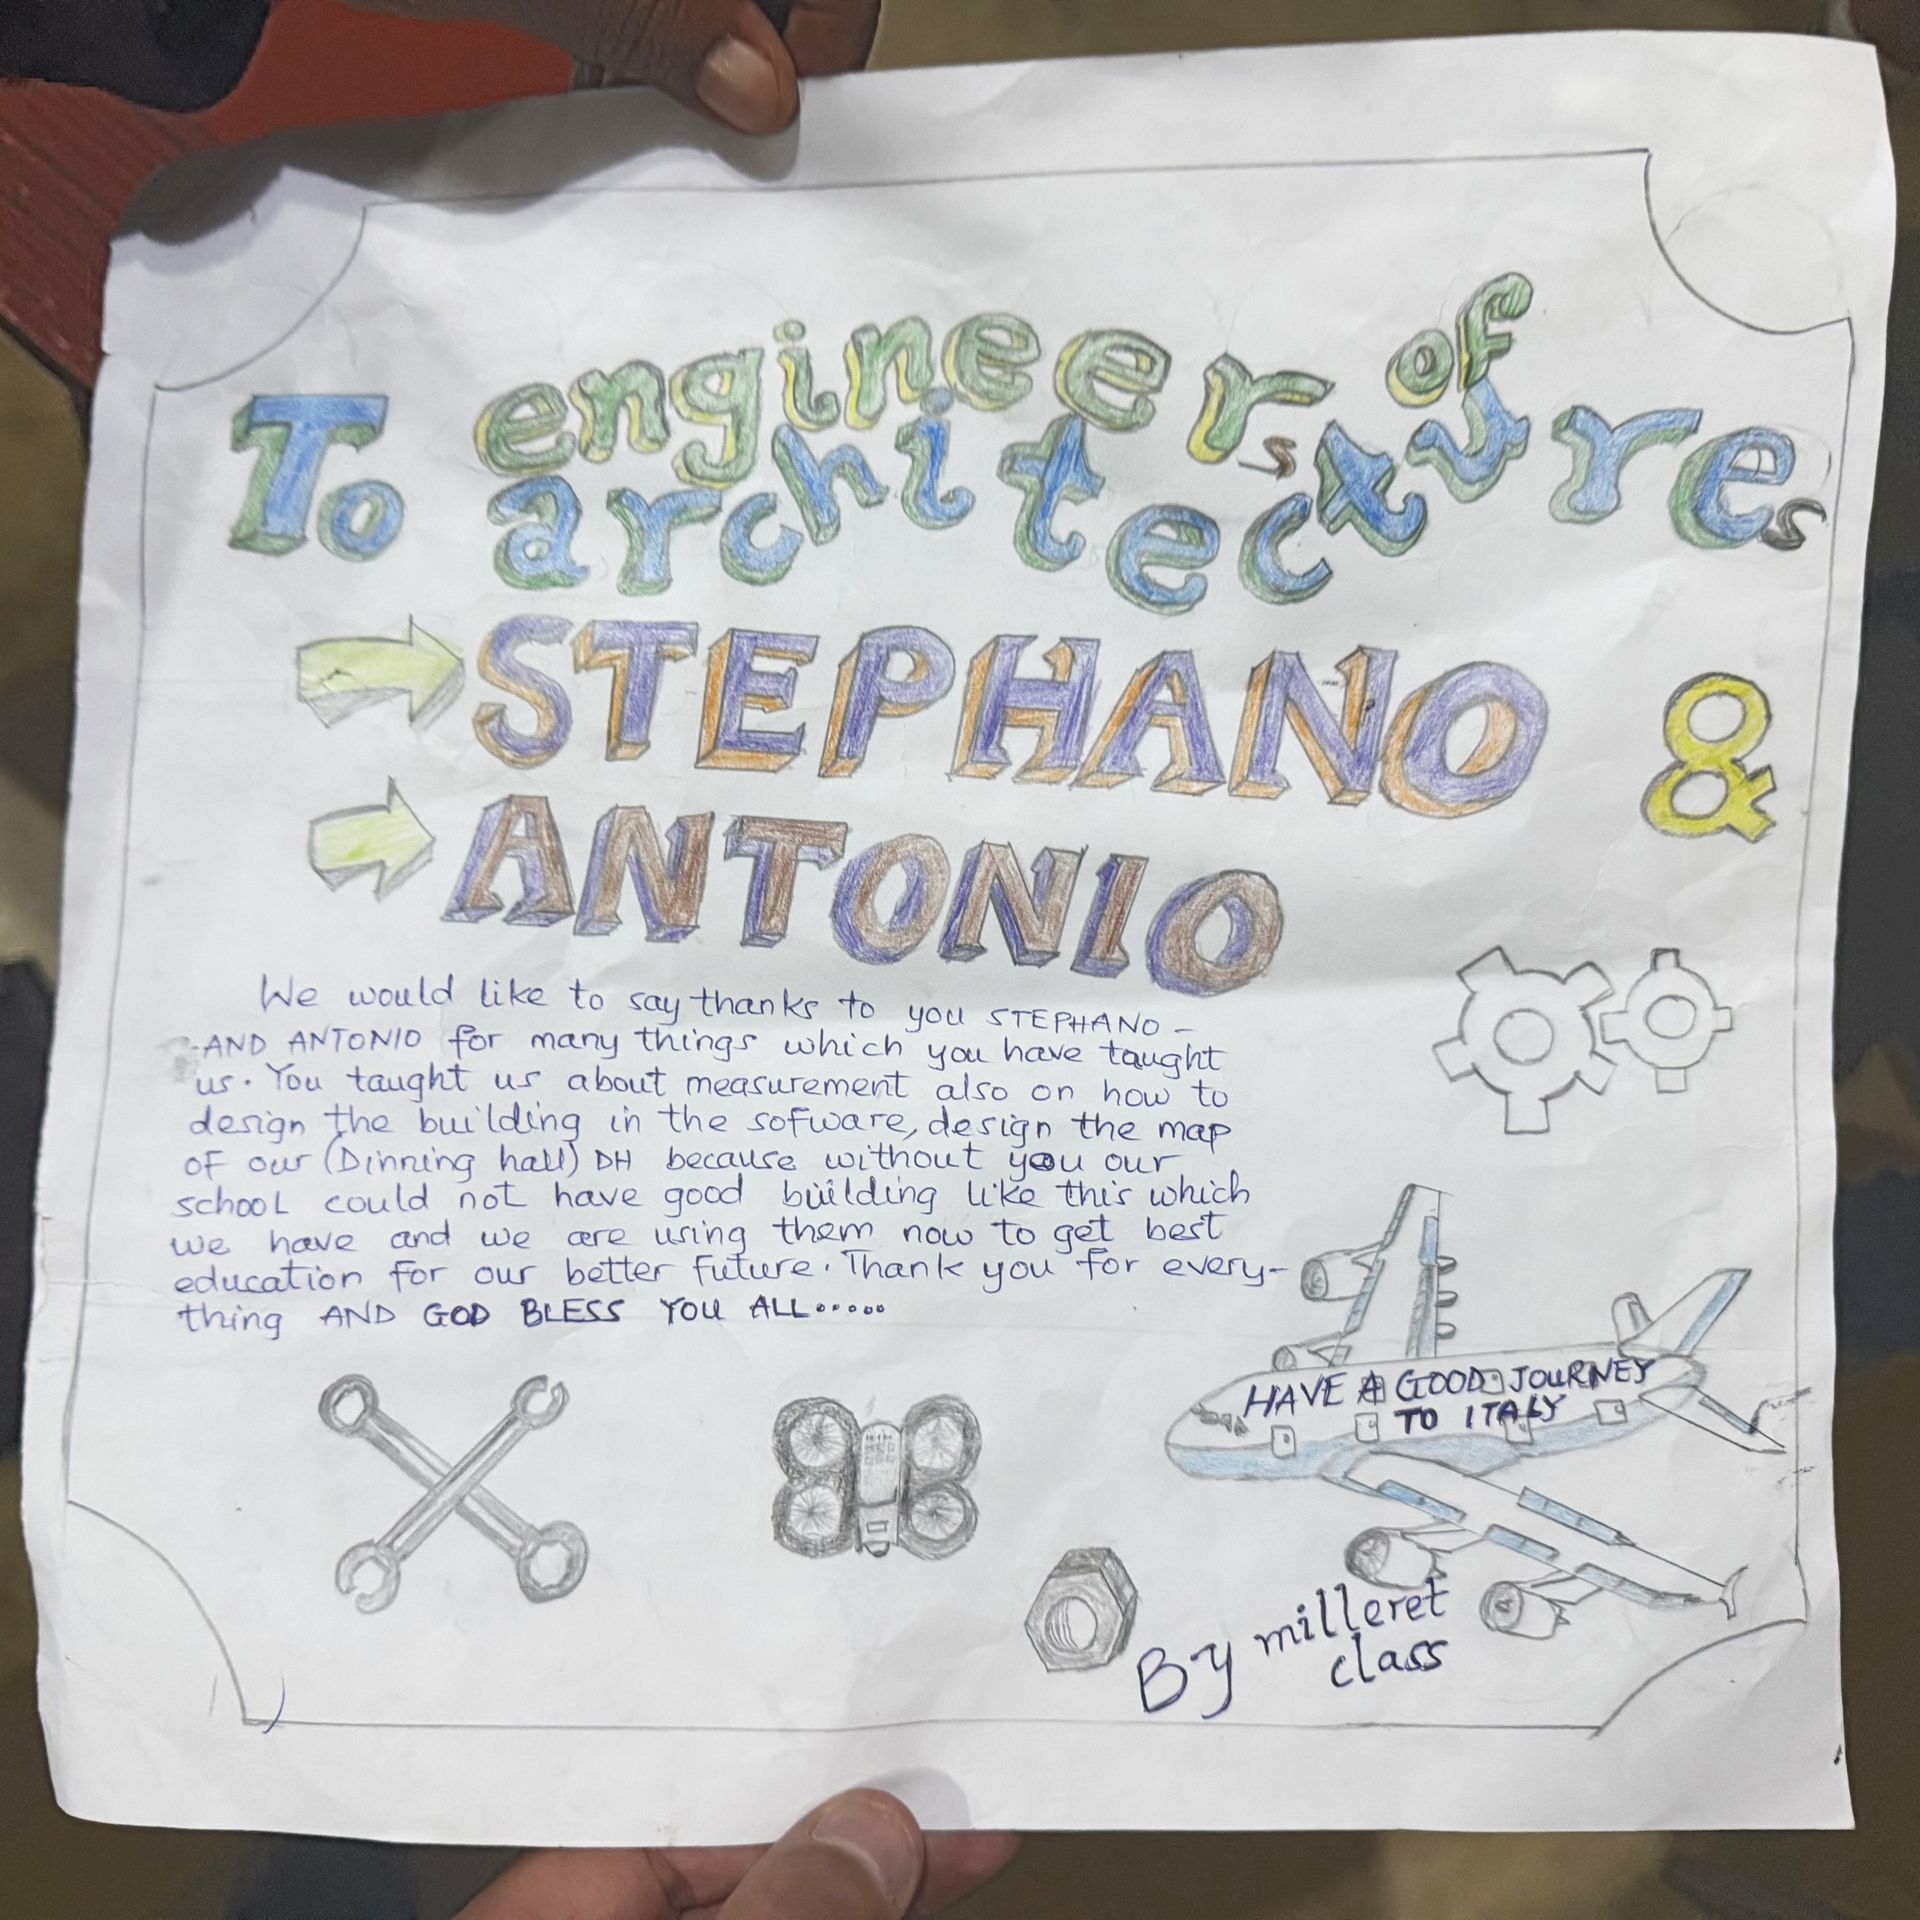 To engineers of
architectures
STEPHANO &
ANTONIO
We would like to say thanks to you STEPHANO -
-AND ANTONIO for many things which you have taught
us. You taught us about measurement also on how to
design the building in the sofware, design the map
of our (Dinning hall) DH because without you our
school could not have good building like this which
we have and we are using them now to get best
education for our better future. Thank you for every-
thing AND GOD BLESS YOU ALL.....
HAVE A GOOD JOURNEY
TO ITALY
By milleret
class